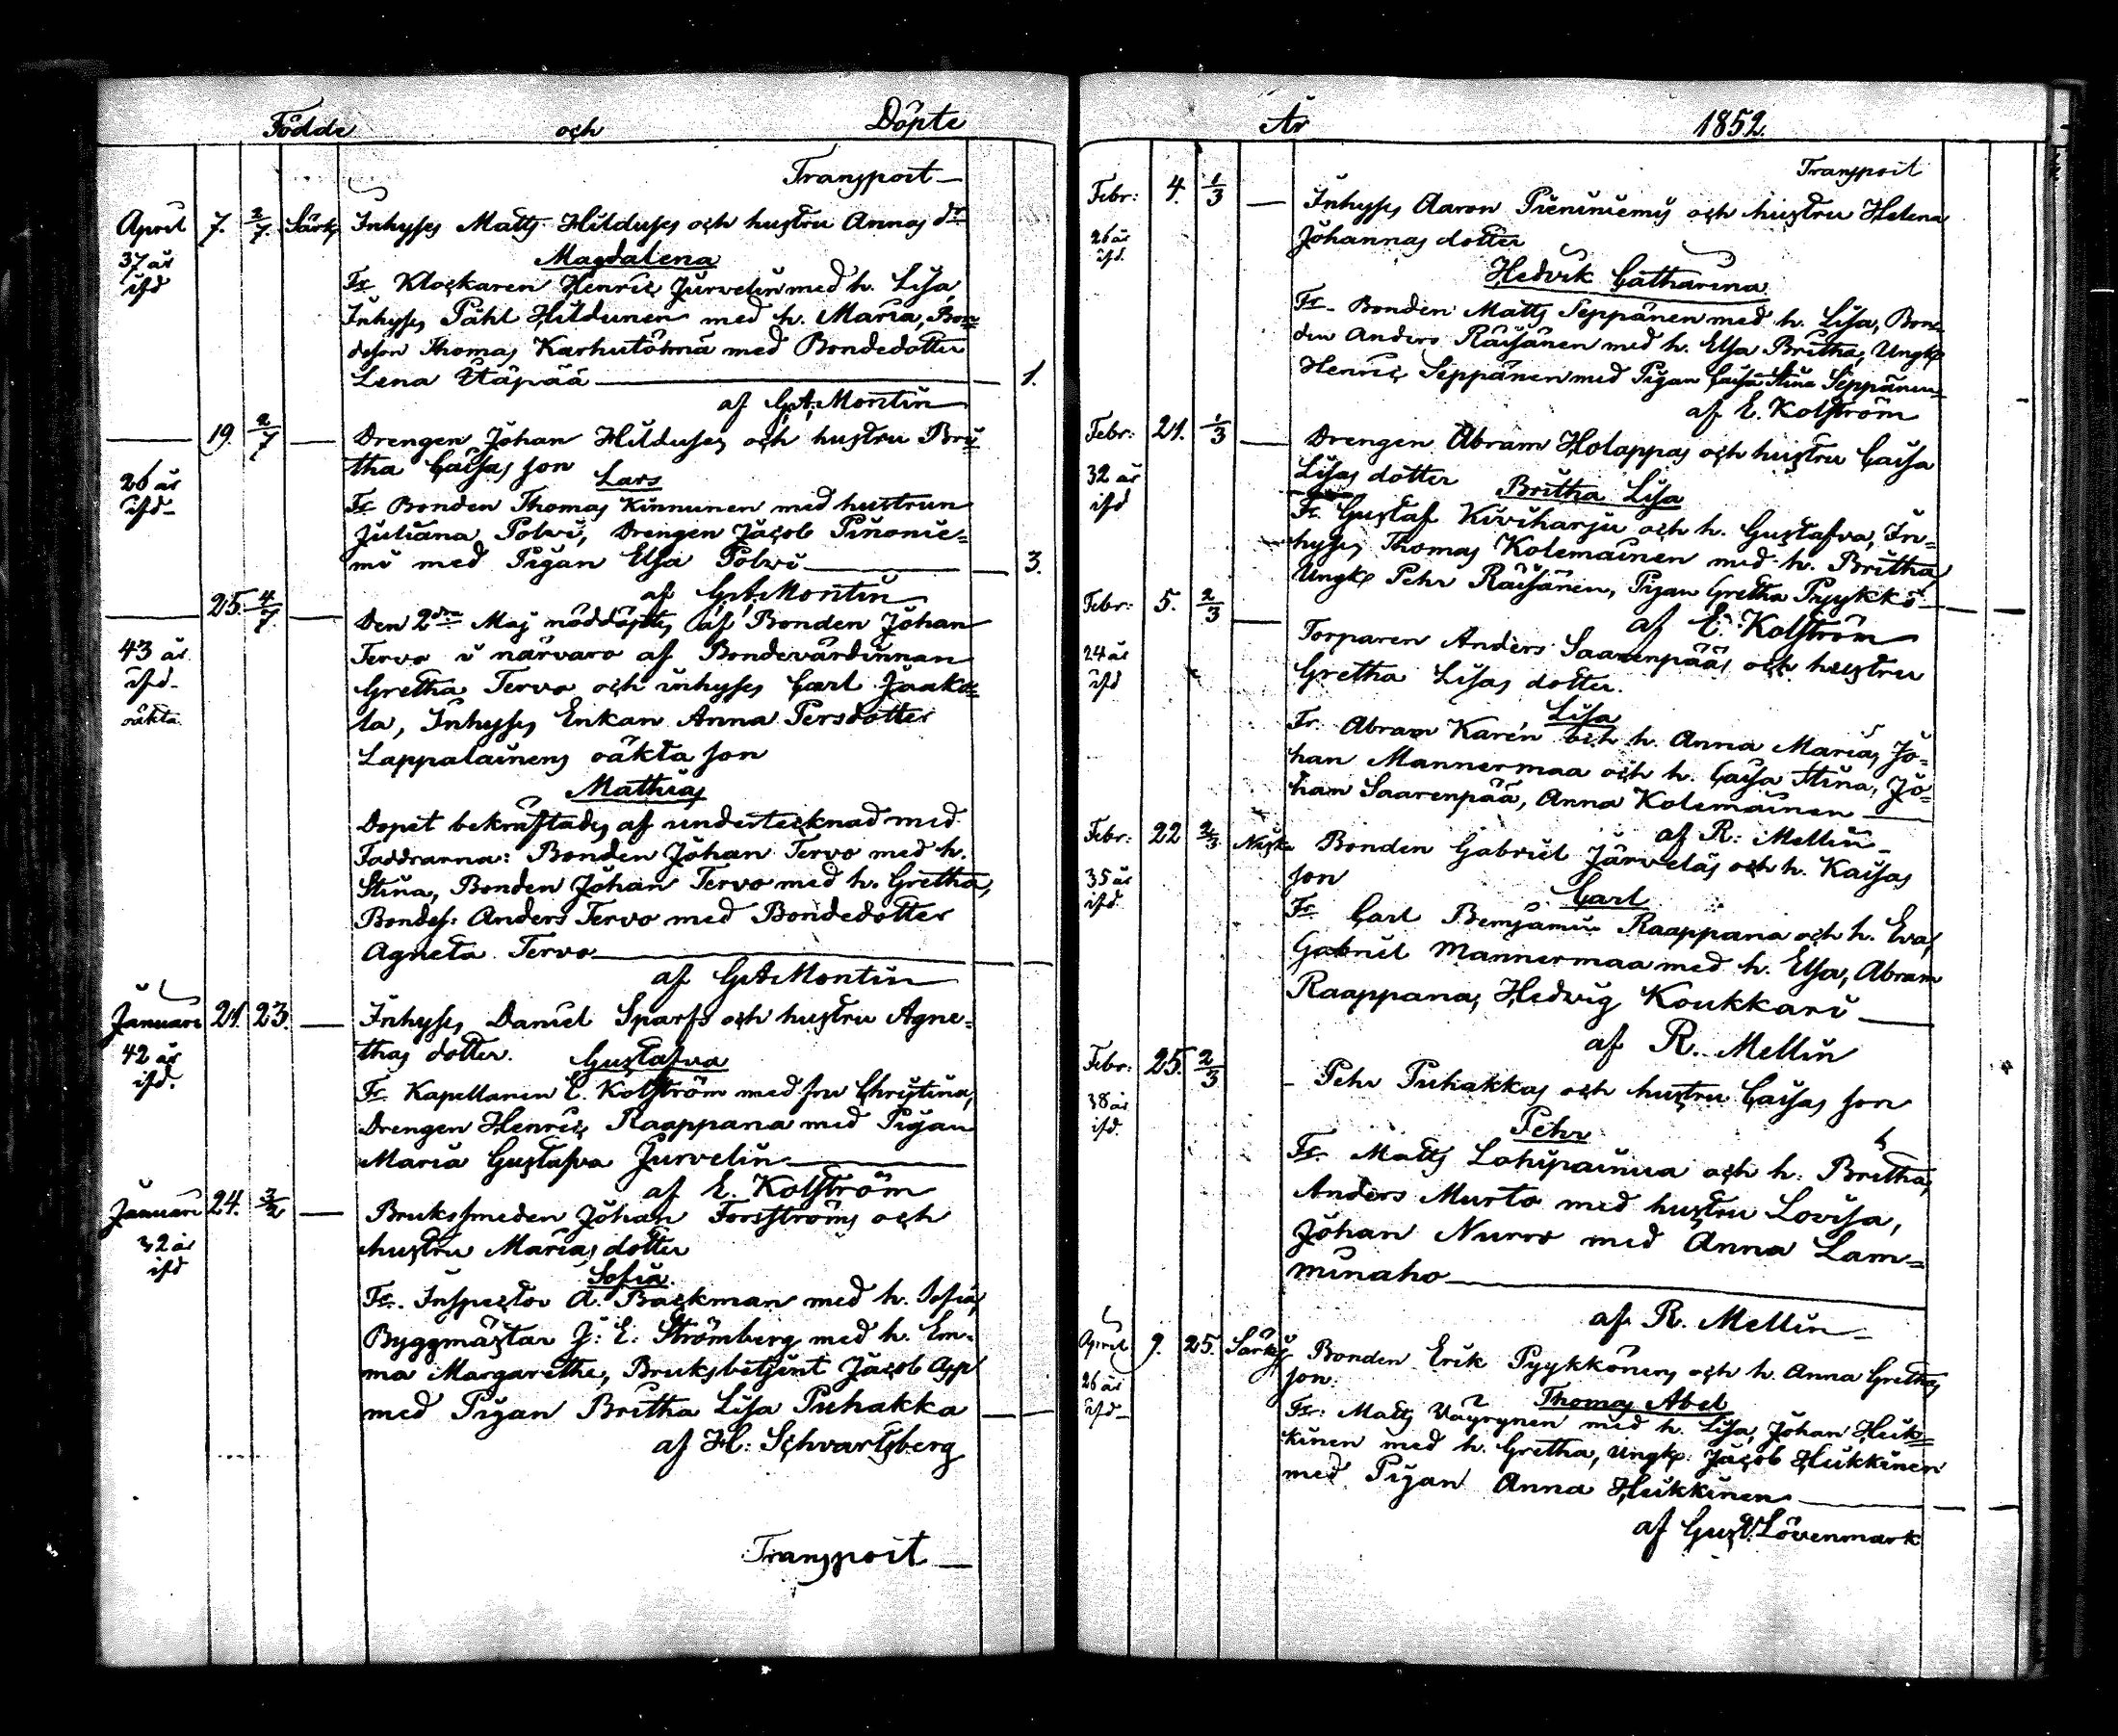 Födde och Döpte
Transport
April 7. 2/7. Särk. Inhyses Matts Hilduses och hustru Annas dr
37 år
ifd
Magdalena
Fr. Klockaren Henric Jurvelin med h. Lisa,
Inhyses Påhl Hildunen med h. Maria, Bon=
deson Thomas Karhutörmä med Bondedotter
Lena Utäpää 1.
af G.A. Montin
19. 2/7 Drengen Johan Hilduses och hustru Bri=
tha Caisas son
26 år
ifd
Lars
Fr Bonden Thomas Kinnunen med hustrun
Juliana Polvi, Drengen Jacob Pinonie=
mi med Pigan Elsa Polvi 3.
af G.A. Montin
25. 4/7 Den 2dra Maj nöddöptes af Bonden Johan
Tervo i närvaro af Bondevärdinnan
43 år
ifd
oäkta
Gretha Tervo och inhyses Carl Jaako=
la, Inhyses Enkan Anna Persdotter
Lappalainens oäkta son
Mathias
Dopet bekräftades af undertecknad med
Faddrarna: Bonden Johan Tervo med h.
Stina, Bonden Johan Tervo med h. Gretha,
Bondes: Anders Tervo med Bondedotter
Agneta Tervo
af G.A. Montin
Januari 21. 23. Inhyses Daniel Sparfs och hustru Agne=
thas dotter.
42 år
ifd.
Gustafva
Fr. Kapellanen E. Kolström med fru Christina,
Drengen Henric Raappana med Pigan
Maria Gustafva Jurvelin
af E. Kolström
Januari 24. 3/2 Brukssmeden Johan Forsströms och
hustru Marias dotter
32 år
ifd
Sofia.
Fr. Inspector A. Backman med h. Sofia,
Byggmästar J: E: Strömberg med h. Em=
ma Margaretha, Bruksbetjent Jacob App
med Pigan Britha Lisa Puhakka
af H: Schvartsberg
Transport
År 1852.
Transport
Febr: 4. 1/3 Inhyses Aaron Pieniniemis och hustru Helena
Johannas dotter
26 år
ifd.
Hedvik Catharina
Fr. Bonden Matts Seppänen med h. Lisa, Bon=
den Anders Räisänen med h. Elsa Britha, Ungk
Henric Seppänen med Pigan Caisa Stina Seppänen
af E. Kolström
Febr: 21. 1/3 Drengen Abram Holappas och hustru Caisa
Lisas dotter
32 år
ifd
Britha Lisa
Fr. Gustaf Kiviharju och h. Gustafva, In=
hyses Thomas Kolemainen med h. Britha,
Ungk Pehr Räisänen, Pigan Gretha Pyykkö
af E. Kolström
Febr: 5. 2/3 Torparen Anders Saarenpääs och hustru
Gretha Lisas dotter.
24 år
ifd
Lisa
Fr. Abram Karén och h. Anna Maria, Jo=
han Mannermaa och h. Caisa Stina, Jo=
han Saarenpää, Anna Kolemainen
af R: Mellin
Febr: 22 2/3. Niska Bonden Gabriel Järveläs och h. Kaisas
son
35 år
ifd
Carl
Fr. Carl Benjamin Raappana och h. Eva,
Gabriel Mannermaa med h. Elsa, Abram
Raappana, Hedvig Koukkari
af R. Mellin
Febr: 25. 2/3 Pehr Puhakkas och hustru Caisas son
38 år
ifd.
Pehr
Fr. Matts Lohipainua och h. Britha,
Anders Murto med hustru Lovisa,
Johan Nurro med Anna Lam=
minaho
af R. Mellin
April 9. 25. Särkij Bonden Erik Pyykkönens och h. Anna Grethas
son.
26 år
ifd
Thomas Abel
Fr: Matts Väyrynen med h. Lisa, Johan Heik=
kinen med h. Gretha, Ungk. Jacob Heikkinen
med Pigan Anna Heikkinen
af Gust. Lövenmark